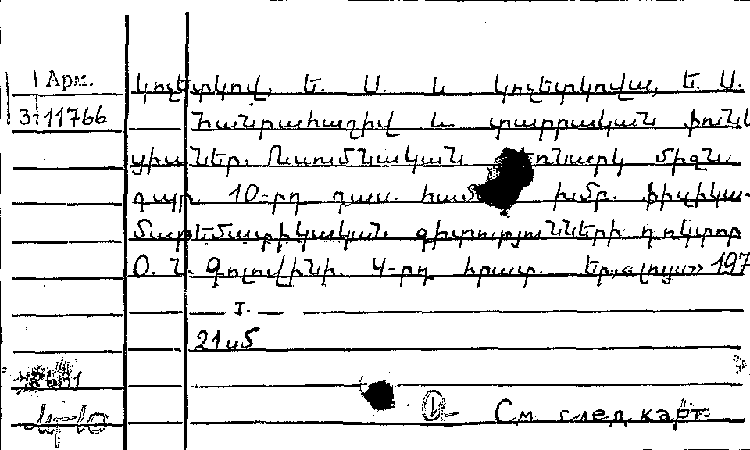 Арм.
3-11766
Կոչետկով, Ե. Ս. և Կոչետկովա, Ե. Ս.
Հանրահաշիվ և տարրական ֆունկ
ցիաներ. Ուսումնական ձեռնարկ միջն.
դպր. 10-րդ դաս. համ խմբ. ֆիզիկա-
մաթեմատիկական գիտությունների դոկտոր
Օ. Ն. Գոլովինի. 4-րդ հրատ. Եր., «Լույս» 197
21 սմ
См. след. карт.